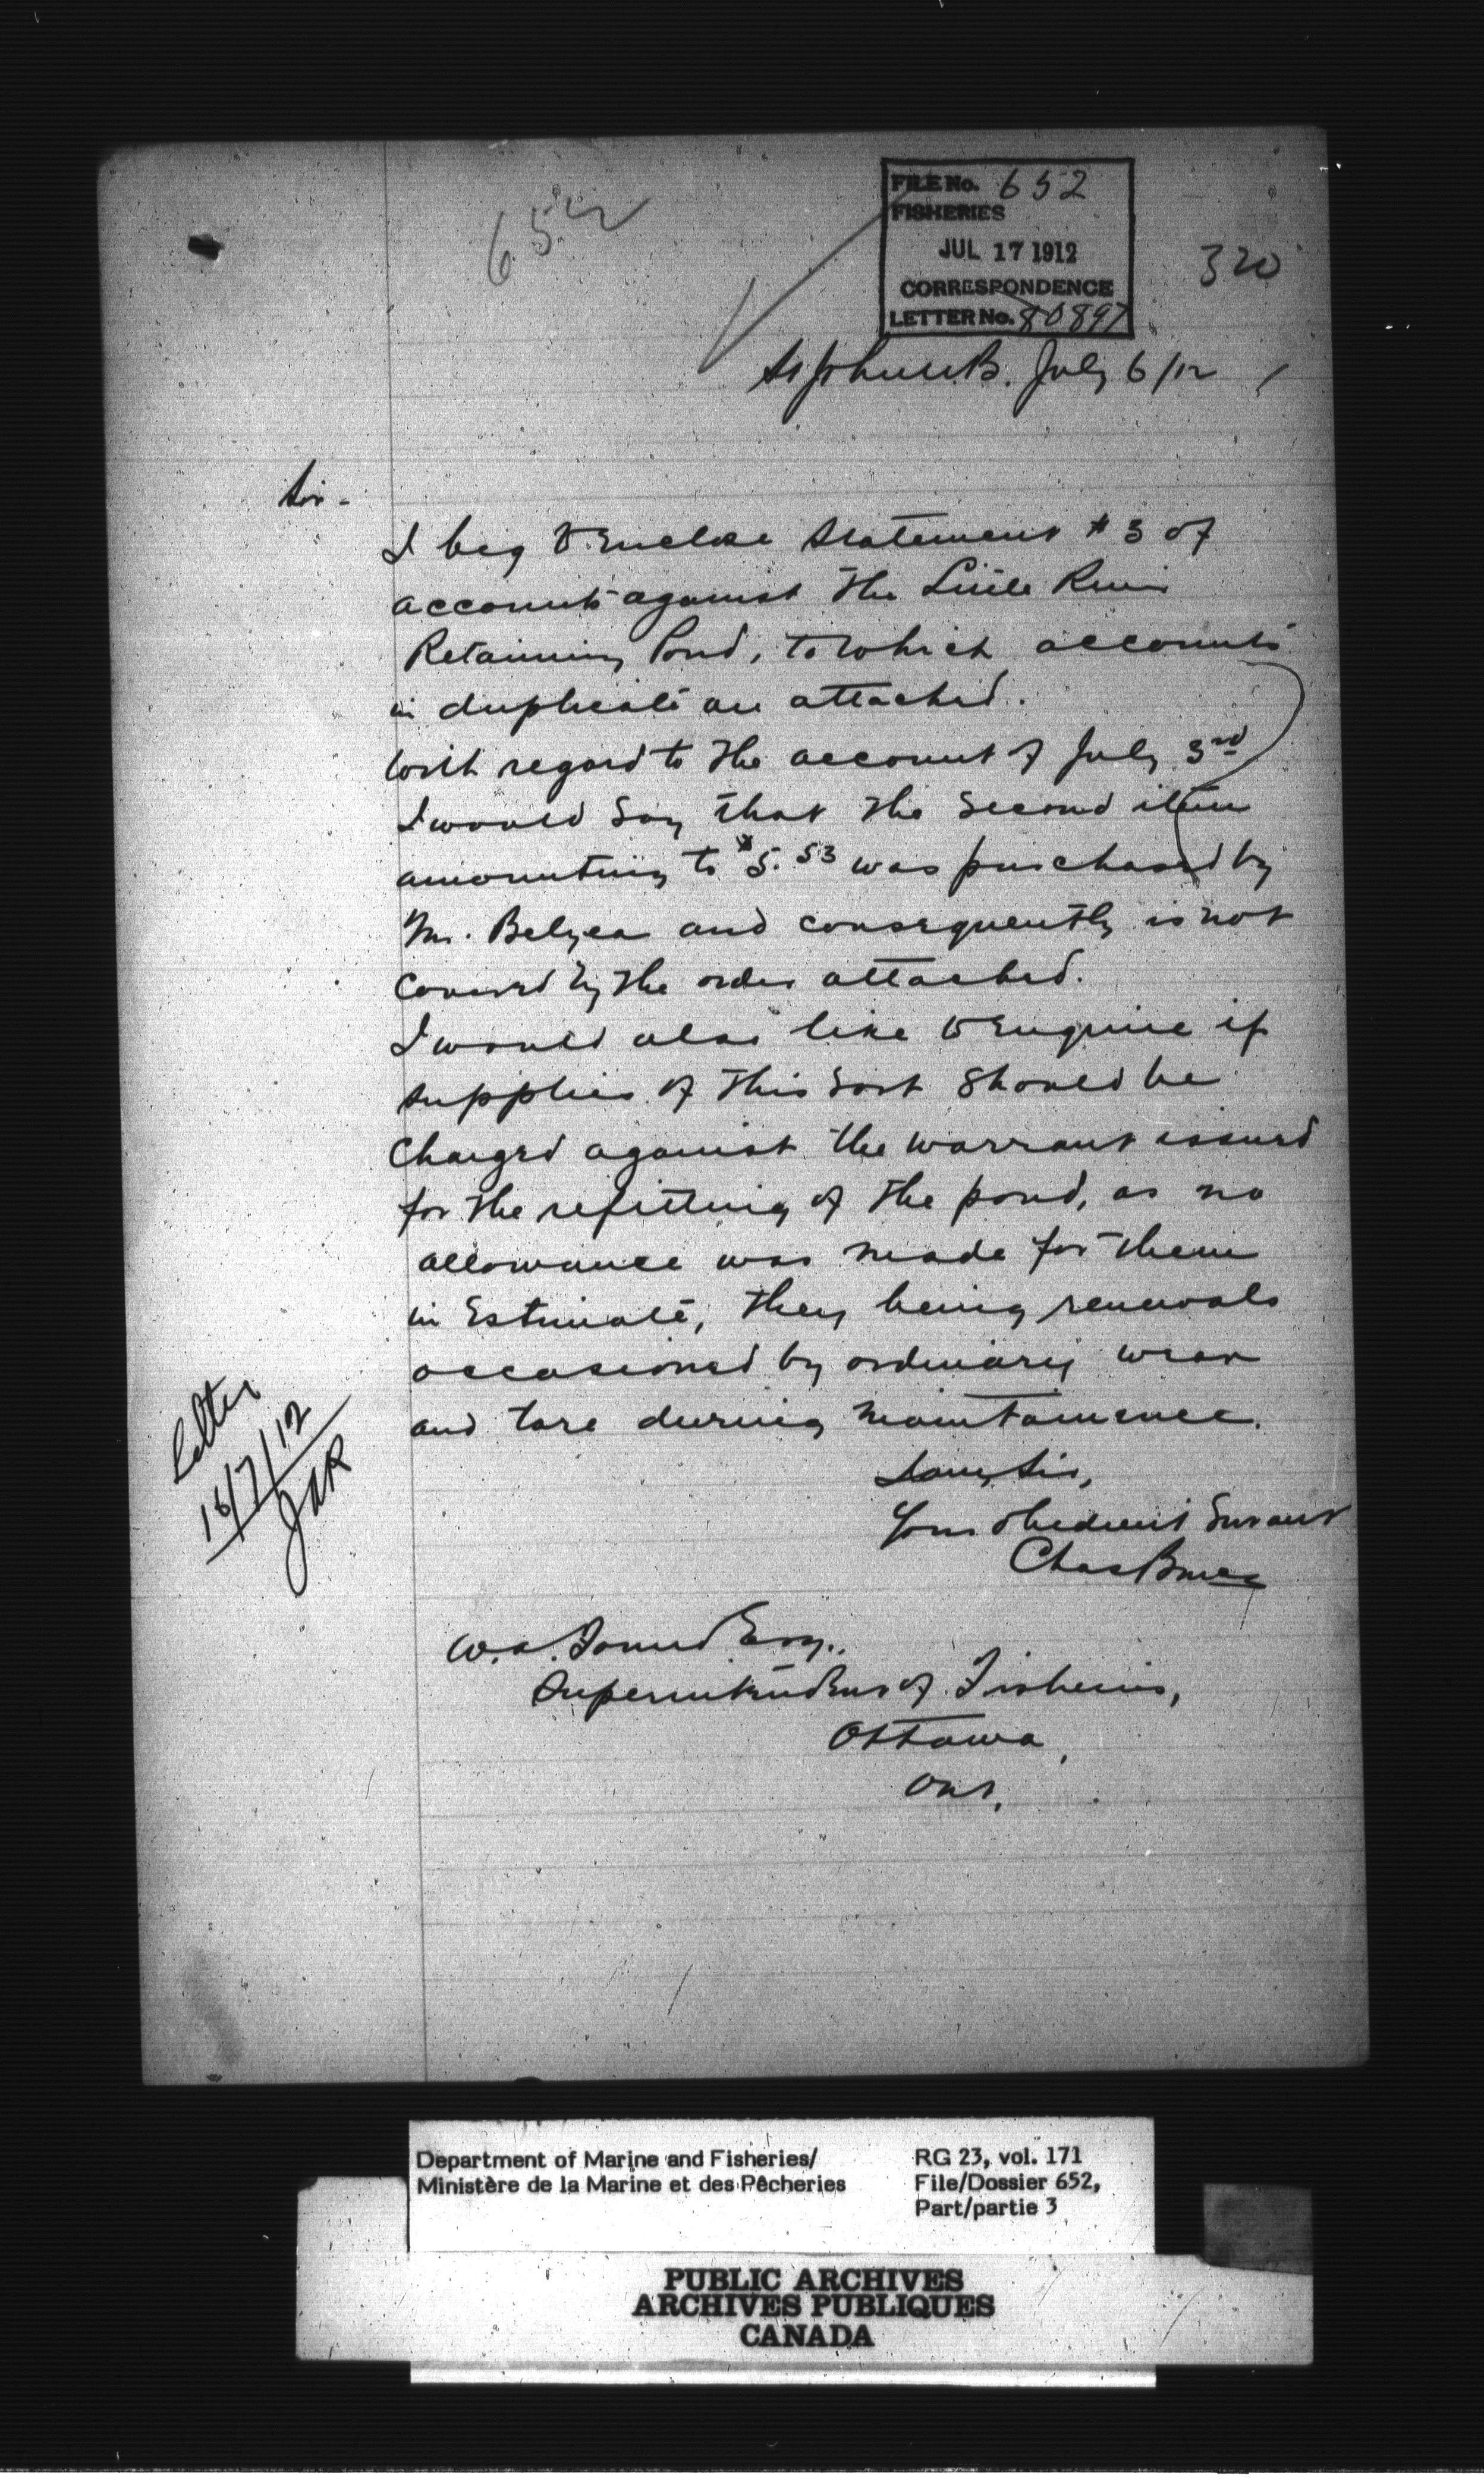 652
FILE No. 652
FISHERIES
JUL 17 1912
CORRESPONDENCE
LETTER No. 80897
320
St John N.B. July 6/12
Sir -
I beg to Enclose Statement # 3 of
accounts against the Little River
Retaining Pond, to which accounts
in duplicate are attached.
With regard to the account of July 3rd
I would say that the Second item
amounting to $5.53 was purchased by
Mr. Belyea and consequently is not
covered by the order attached.
I would also like to Enquire if
supplies of this sort should be
charged against the warrant issued
for the refitting of the pond, as no
allowance was made for them
in Estimate, they being renewals
occasioned by ordinary wear
and tare during maintainence.
I am, Sir,
Your obedient Servant
Chas Bruce
Letter
16/7/12
W.A. Found Esq.,
Superintendent of Fisheries,
Ottawa,
Ont.
Department of Marine and Fisheries/
Ministère de la Marine et des Pêcheries
RG 23, vol. 171
File/Dossier 652,
Part/partie 3
PUBLIC ARCHIVES
ARCHIVES PUBLIQUES
CANADA